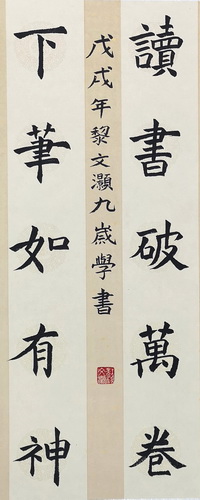 讀書破萬卷
下筆如有神
戊戌年黎文灝九歲學書